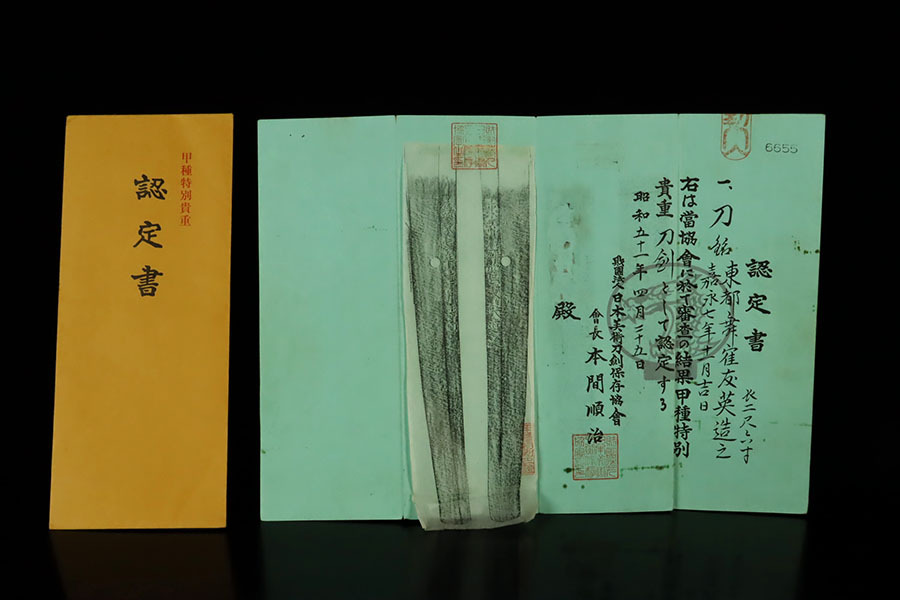 甲種特別貴重
認定書
6655
認定書
一、刀 銘 東都舞寉友英造之
嘉永七年十一月吉日
長二尺六寸
右は當協會に於て審査の結果甲種特別
貴重刀剣として認定する
昭和五十一年四月二十五日
財團法人日本美術刀剣保存協會
會長 本間順治
殿